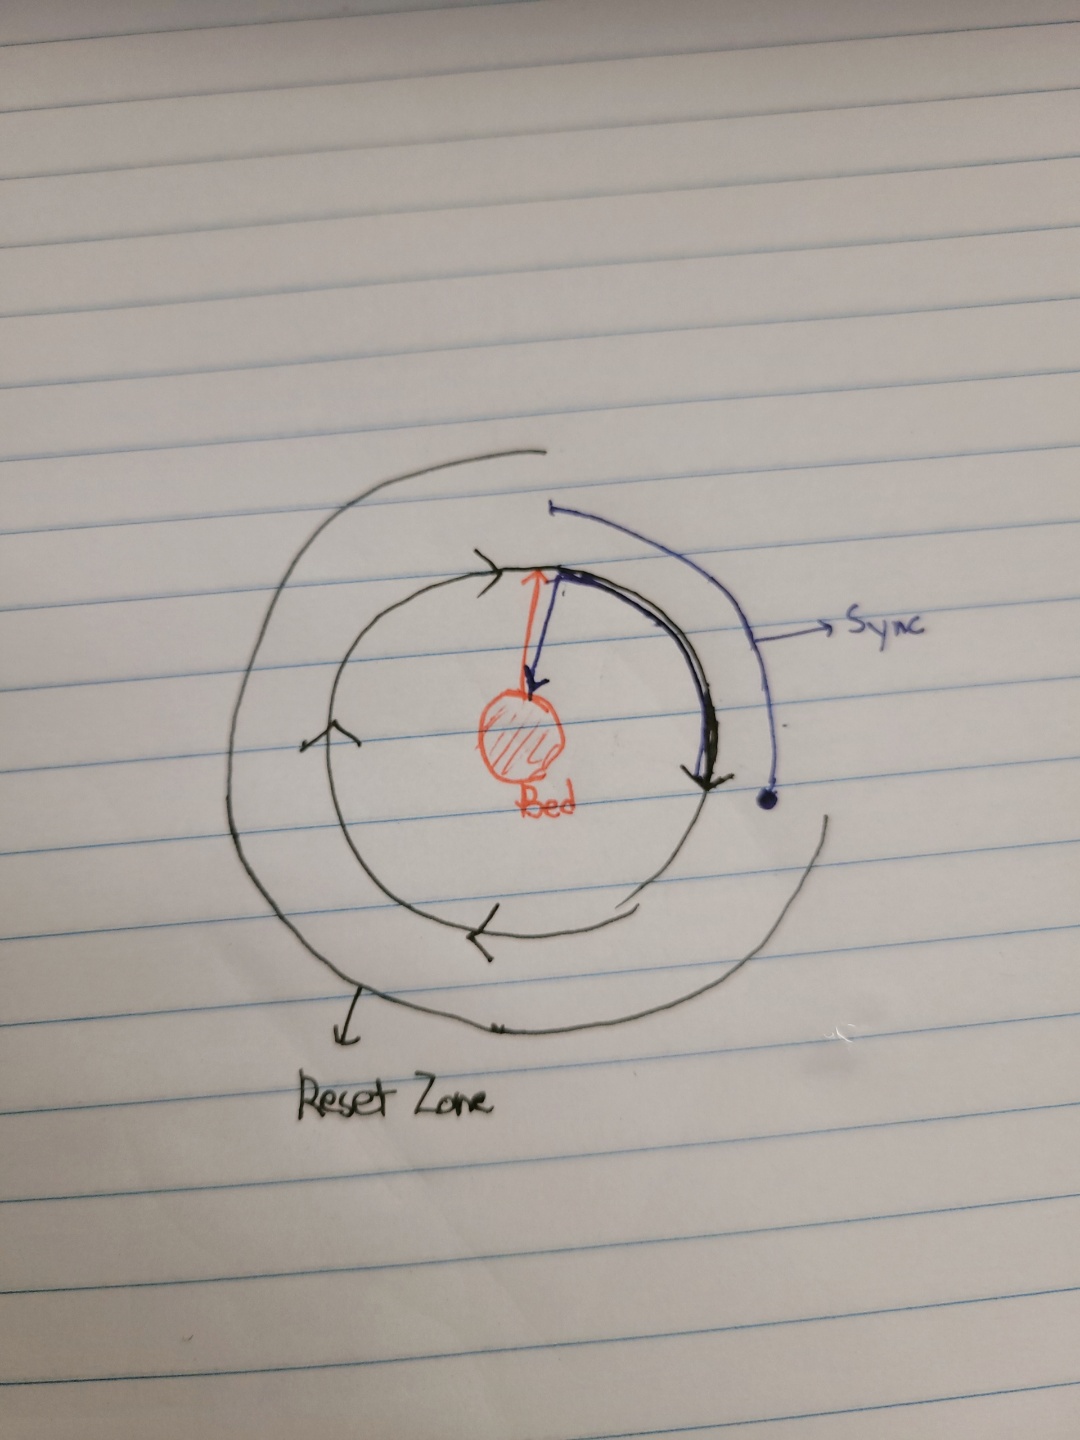 Sync
Bed
Reset Zone